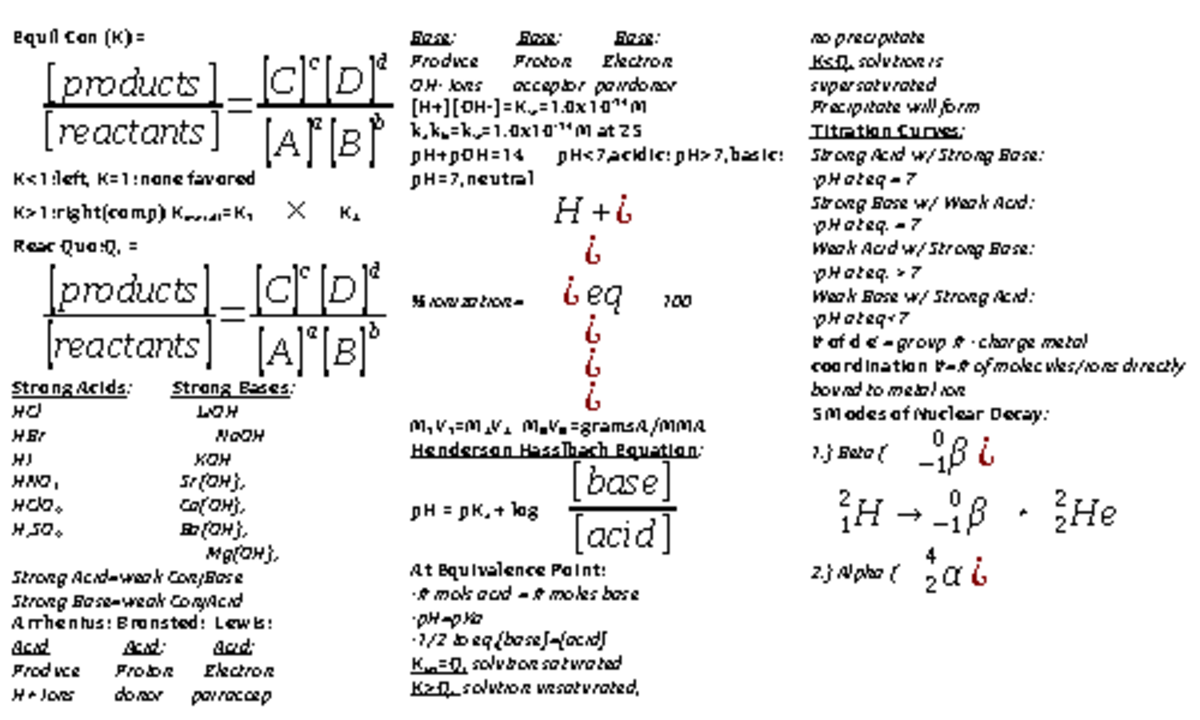 Equil Con (K) =
[products] / [reactants] = [C]^c [D]^d / [A]^a [B]^b
K<1:left, K=1:none favored
K>1:right(comp) K = K₁ × K₂
Reac Quo:Q, =
[products] / [reactants] = [C]^c [D]^d / [A]^a [B]^b
Strong Acids: Strong Bases:
HCl LiOH
HBr NaOH
HI KOH
HNO₃ Sr(OH)₂
HClO₄ Ca(OH)₂
H₂SO₄ Ba(OH)₂
Mg(OH)₂
Strong Acid=weak ConjBase
Strong Base=weak ConjAcid
Arrhenius: Bronsted: Lewis:
Acid Acid: Acid:
Produce Proton Electron
H+ Ions donor pairaccep
Base: Base: Base:
Produce Proton Electron
OH- Ions acceptor pairdonor
[H+][OH-]=Kw=1.0x10⁻¹⁴M
kakb=kw=1.0x10⁻¹⁴M at 25
pH+pOH=14 pH<7,acidic: pH>7,basic:
pH=7,neutral
H+¿
¿
% ionization= ¿eq 100
¿
¿
¿
M₁V₁=M₂V₂ MAVA=gramsA/MMA
Henderson Hasslbach Equation:
pH = pKa + log [base] / [acid]
At Equivalence Point:
·# mols acid = # moles base
·pH=pKa
·1/2 to eq,[base]=[acid]
Ksp=Q, solution saturated
K>Q, solution unsaturated,
no precipitate
K<Q, solution is
supersaturated
Precipitate will form
Titration Curves:
Strong Acid w/ Strong Base:
·pH at eq = 7
Strong Base w/ Weak Acid:
·pH at eq. = 7
Weak Acid w/ Strong Base:
·pH at eq. > 7
Weak Base w/ Strong Acid:
·pH at eq<7
# of d e' = group # - charge metal
coordination #=# of molecules/ions directly
bound to metal ion
5 Modes of Nuclear Decay:
1.) Beta ( ⁰₋₁β ¿
²₁H → ⁰₋₁β + ²₂He
2.) Alpha ( ⁴₂α ¿